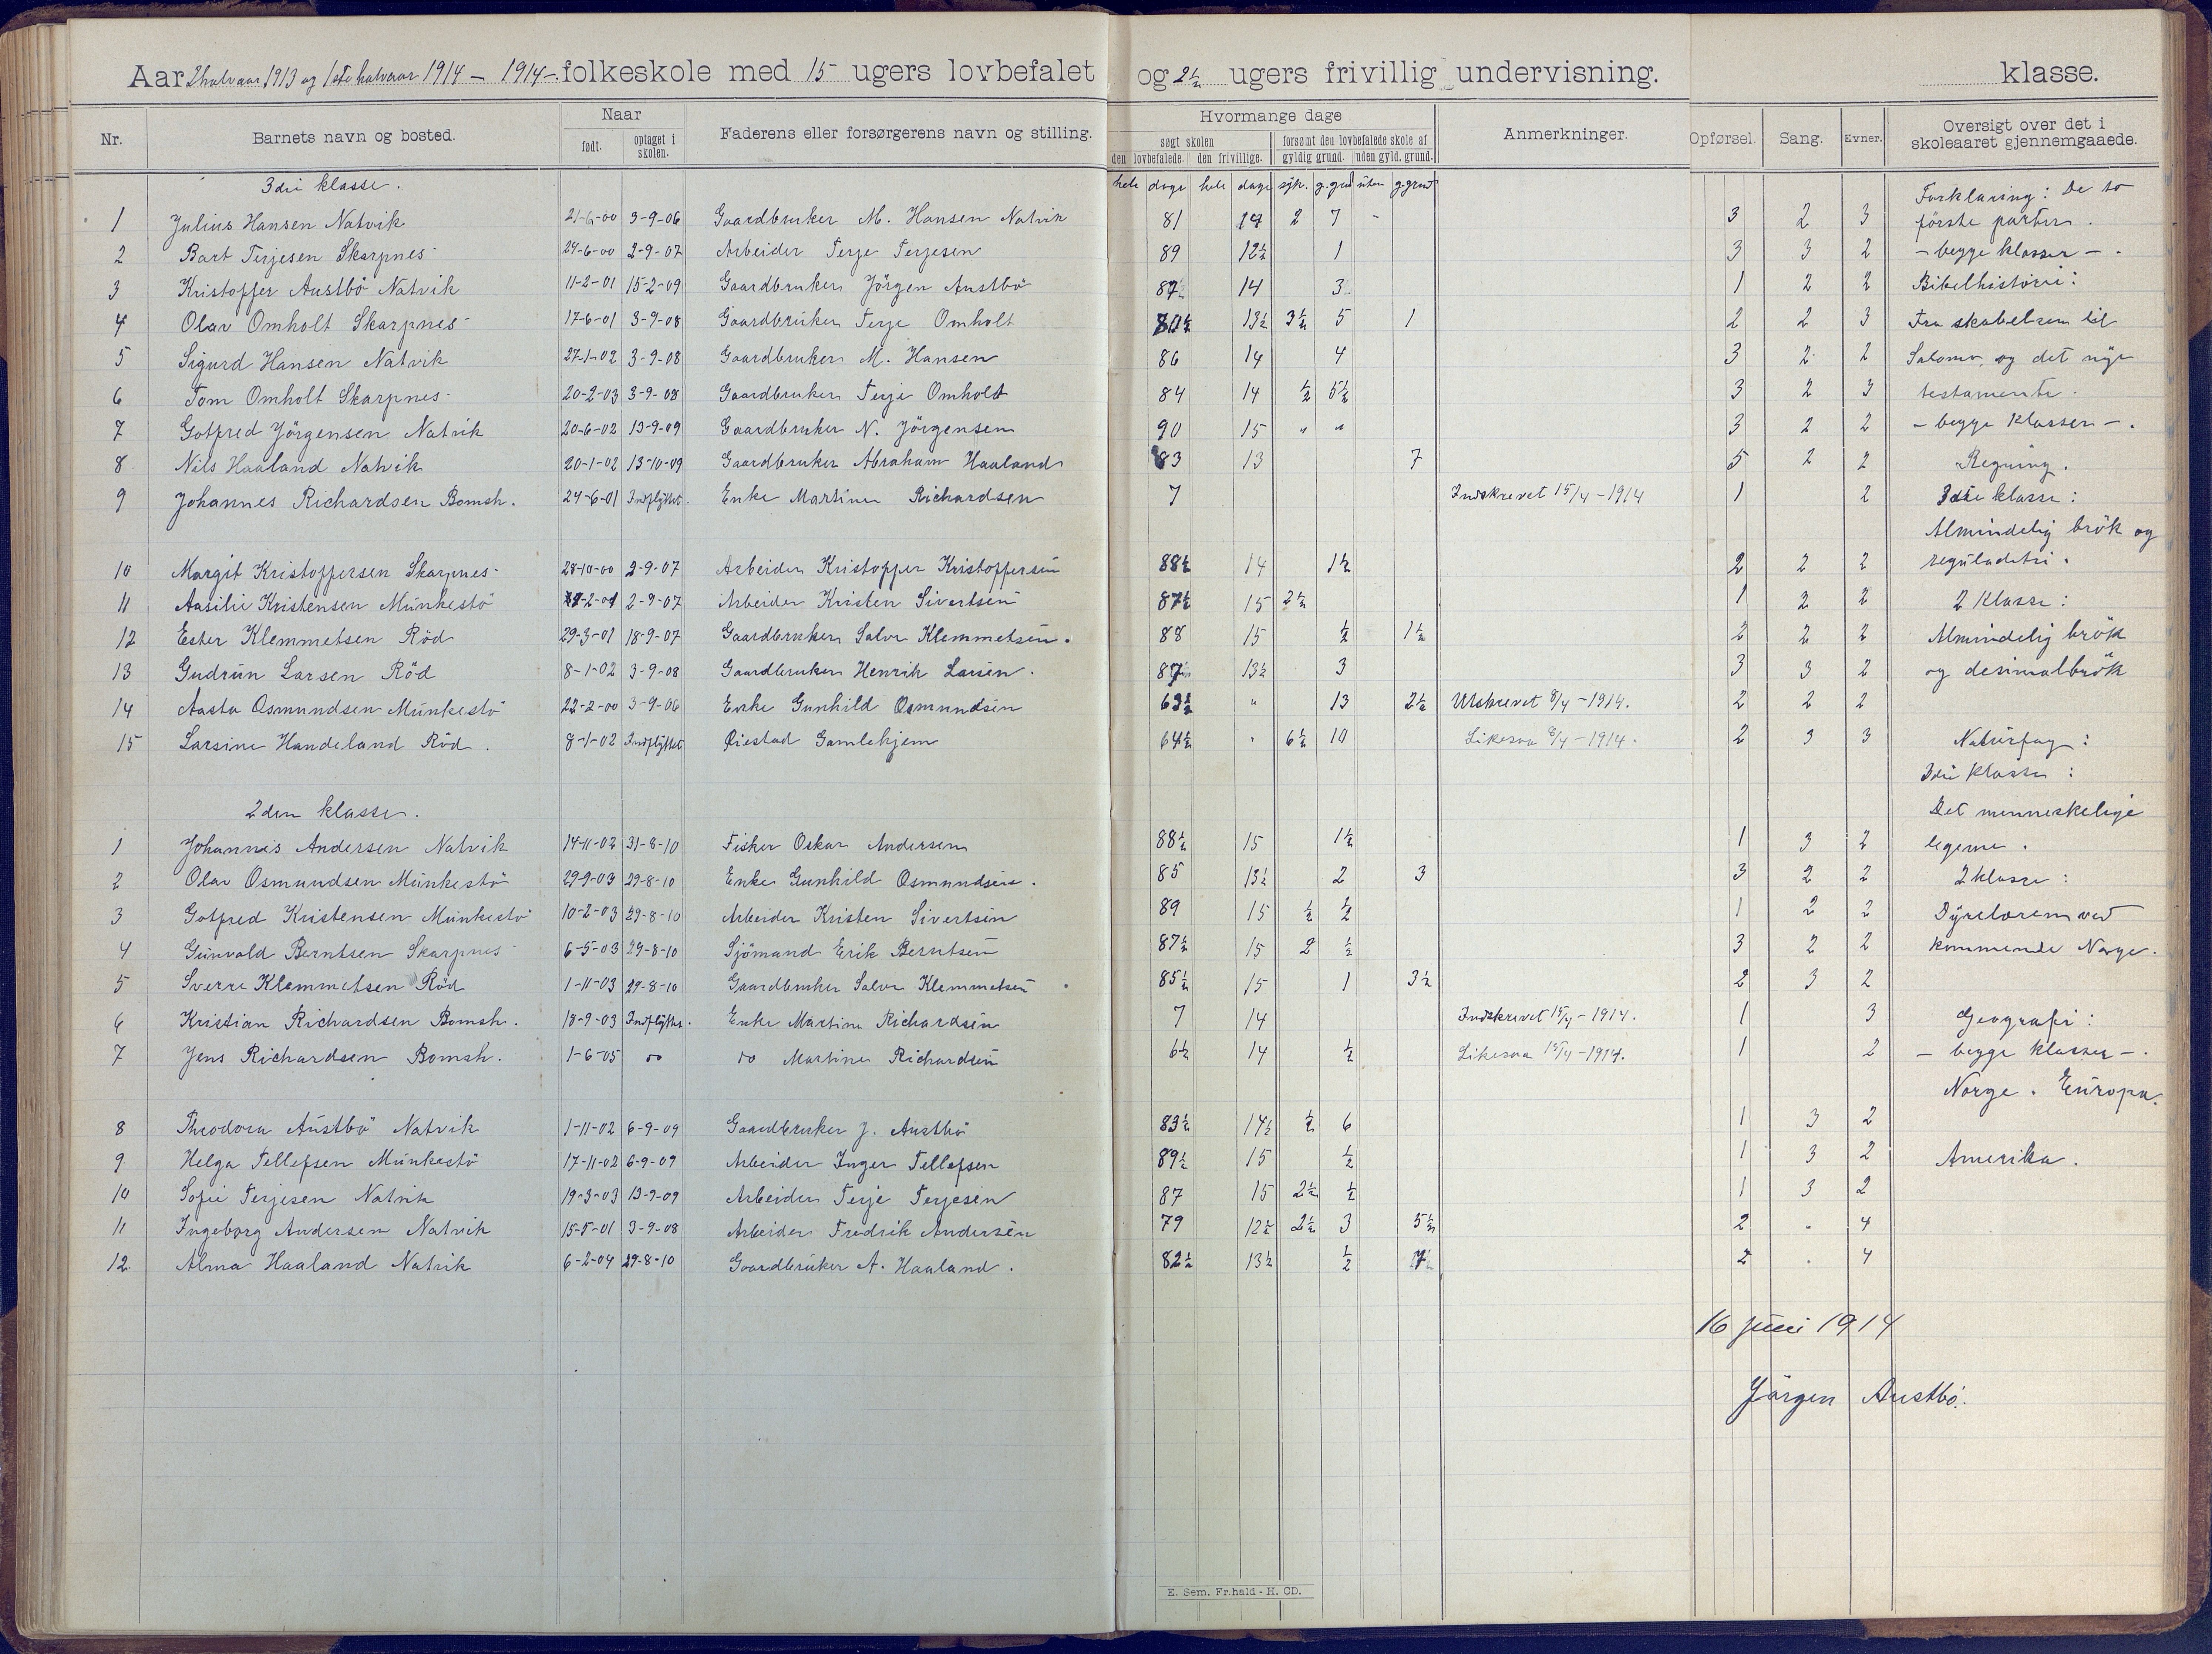 Aar 2 halvaar 1913 og 1ste halvaar 1914 – 1914 – folkeskole med 15 ugers lovbefalet og 2½ ugers frivillig undervisning. klasse.
Nr. Barnets navn og bosted. Naar født. optaget i skolen. Faderens eller forsørgerens navn og stilling. Hvormange dage søgt skolen den lovbefalede. den frivillige. forsømt den lovbefalede skole af gyldig grund. uden gyld. grund. Anmerkninger. Opførsel. Sang. Evner. Oversigt over det i skoleaaret gjennemgaaede.
3die klasse. hele dage hele dage syk. g.grund uten g.grund Forklaring: De to
1 Julius Hansen Natvik 21-6-00 3-9-06 Gaardbruker M. Hansen Natvik 81 14 2 7 " 3 2 3 første parter.
2 Bart Terjesen Skarpnes 24-6-00 2-9-07 Arbeider Terje Terjesen 89 12½ 1 3 3 2 – begge klasser –.
3 Kristoffer Austbö Natvik 11-2-01 15-2-09 Gaardbruker Jörgen Austbö 87 14 3 1 2 2 Bibelhistorie:
4 Olav Omholt Skarpnes 17-6-01 3-9-08 Gaardbruker Terje Omholt 80½ 13½ 3½ 5 1 2 2 3 Fra skabelsen til
5 Sigurd Hansen Natvik 27-1-02 3-9-08 Gaardbruker M. Hansen 86 14 4 3 2 2 Salomo, og det nye
6 Tom Omholt Skarpnes 20-2-03 3-9-08 Gaardbruker Terje Omholt 84 14 ½ 5½ 3 2 3 testamente.
7 Gotfred Jörgensen Natvik 20-6-02 13-9-09 Gaardbruker N. Jörgensen 90 15 " " 3 2 2 – begge klasser –.
8 Nils Haaland Natvik 20-1-02 13-10-09 Gaardbruker Abraham Haaland 83 13 7 5 2 2 Regning.
9 Johannes Richardsen Bomsh. 24-6-01 Indflyttet. Enke Martine Richardsen 7 Indskrevet 15/4 – 1914 1 2 3die klasse:
Almindelig brök og
10 Margit Kristoffersen Skarpnes 28-10-00 2-9-07 Arbeider Kristoffer Kristoffersen 88½ 14 1½ 2 2 2 reguladetri.
11 Aasilie Kristensen Munkestö 2-01 2-9-07 Arbeider Kristen Sivertsen 87½ 15 2½ 1 2 2 2 klasse:
12 Ester Klemmetsen Röd 29-3-01 18-9-07 Gaardbruker Salve Klemmetsen. 88 15 ½ 1½ 2 2 2 Almindelig brök
13 Gudrun Larsen Röd 8-1-02 3-9-08 Gaardbruker Henrik Larsen. 87 13½ 3 3 3 2 og desimalbrök
14 Aasta Osmundsen Munkestö 22-2-00 3-9-06 Enke Gunhild Osmundsen 63½ " 13 2½ Utskrevet 8/4 – 1914. 2 2 2
15 Larsine Handeland Röd. 8-1-02 Indflyttet Øiestad Gamlehjem 64½ " 6½ 10 Likesaa 8/4 – 1914. 2 3 3 Naturfag:
3die klasse:
2den klasse. Det menneskelige
1 Johannes Andersen Natvik 14-11-02 31-8-10 Fisker Oskar Andersen 88½ 15 1½ 1 3 2 legeme.
2 Olav Osmundsen Munkestö 29-9-03 29-8-10 Enke Gunhild Osmundsen. 85 13½ 2 3 3 2 2 2 klasse:
3 Gotfred Kristensen Munkestö 10-2-03 29-8-10 Arbeider Kristen Sivertsen 89 15 ½ ½ 1 2 2 Dyrelæren ved
4 Gunvald Berntsen Skarpnes 6-5-03 29-8-10 Sjömand Erik Berntsen 87½ 15 2 ½ 3 2 2 kommende Norge.
5 Sverre Klemmetsen Röd 1-11-03 29-8-10 Gaardbruker Salve Klemmetsen 85½ 15 1 3½ 2 3 2
6 Kristian Richardsen Bomsh. 18-9-03 Indflyttet. Enke Martine Richardsen 7 14 Indskrevet 15/4 – 1914. 1 3 Geografi:
7 Jens Richardsen Bomsh. 1-6-05 do do Martine Richardsen 6½ 14 ½ Likesaa 15/4 – 1914. 1 2 – begge klasser –.
Norge. Europa.
8 Theodora Austbö Natvik 1-11-02 6-9-09 Gaardbruker J. Austbö 83½ 14½ ½ 6 1 3 2
9 Helga Tellefsen Munkestö 17-11-02 6-9-09 Arbeider Inger Tellefsen 89½ 15 ½ 1 3 2 Amerika.
10 Sofie Terjesen Natvik 19-3-03 13-9-09 Arbeider Terje Terjesen 87 15 2½ ½ 1 3 2
11 Ingeborg Andersen Natvik 15-5-01 3-9-08 Arbeider Fredrik Andersen 79 12½ 2½ 3 5½ 2 " 4
12 Alma Haaland Natvik 6-2-04 29-8-10 Gaardbruker A. Haaland. 82½ 13½ ½ 7 2 " 4
16 juni 1914
Jörgen Austbö.
E. Sem. Fr.hald - H. CD.